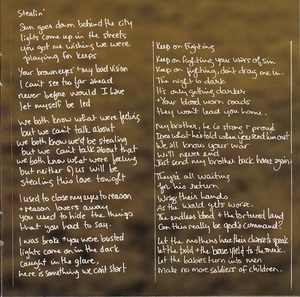 Stealin'
Sun goes down behind the city
lights come up in the streets
you got me wishing we were
playing for keeps
Your brown eyes + my bad vision
I can't see too far ahead
never before would I have
let myself be led
we both know what were feeling
but we can't talk about
we both know we'd be stealing
but we can't talk about that
we both know what were feeling
but neither of us will be
stealing this love tonight
I used to close my eyes to reason
+ reason lowers away
you used to hide the things
that you had to say.
I was broke + you were busted
lights come on in the dark
caught in the glare,
here is something we can't start
Keep on fighting
Keep on fighting, your wars of sin
Keep on fighting, don't drag me in.
The night is dark
It's only getting darker
+ Your blood worn roads
they won't lead you home.
My brother, he is strong + proud
Does what he's told what you send him out
We all know your war
will never end
Just send my brother back home again
They're all waiting
for his return
Wring their hands
As the world gets worse.
The endless blood + the tortured land
Can this really be god's command?
Let the mothers have their chance to speak
let the bold + the brave yield to the meek.
Let the babies turn into men
Make no more soldiers of children.